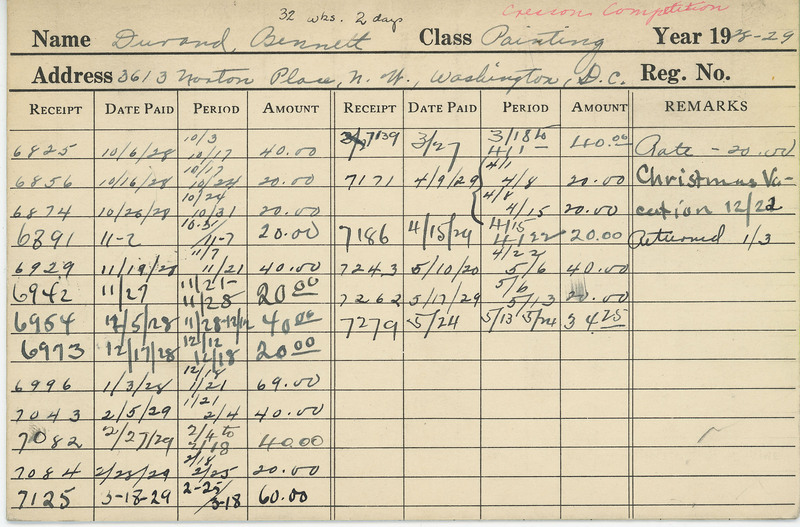 32 wks. 2 days
Cresson Competition
Name Durand, Bennett Class Painting Year 1928-29
Address 3613 Norton Place, N. W., Washington, D.C. Reg. No.
RECEIPT DATE PAID PERIOD AMOUNT RECEIPT DATE PAID PERIOD AMOUNT REMARKS
6825 10/6/28 10/3 10/17 40.00 7139 3/27 3/18 to 4/1 40.00 Rate - 20.00
6856 10/16/28 10/17 10/24 20.00 7171 4/9/29 4/1 4/8 20.00 Christmas Va-
6874 10/26/28 10/24 10/31 20.00 4/8 4/15 20.00 cation 12/22
6891 11-2 10-31 11-7 20.00 7186 4/15/29 4/15 4/22 20.00 Returned 1/3
6929 11/19/28 11/7 11/21 40.00 7243 5/10/20 4/22 5/6 40.00
6942 11/27 11/21- 11/28 20.00 7262 5/17/29 5/6 5/13 20.00
6954 12/5/28 11/28-12/12 40.00 7279 5/24 5/13 5/24 34.25
6973 12/17/28 12/12 12/18 20.00
6996 1/3/28 12/18 1/21 69.00
7043 2/5/29 1/21 2/4 40.00
7082 2/27/29 2/4 to 2/18 40.00
7084 2/28/29 2/18 2/25 20.00
7125 3-18-29 2-25/3-18 60.00